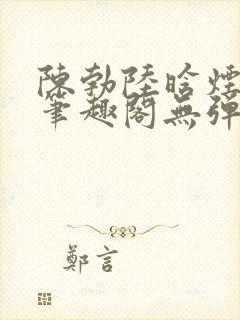 陳勃陸晗煙
筆趣閣無彈
鄭言